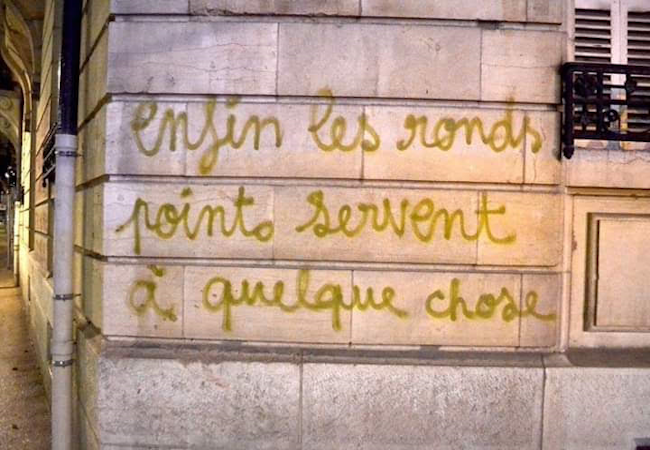 enfin les ronds
point servent
à quelque chose